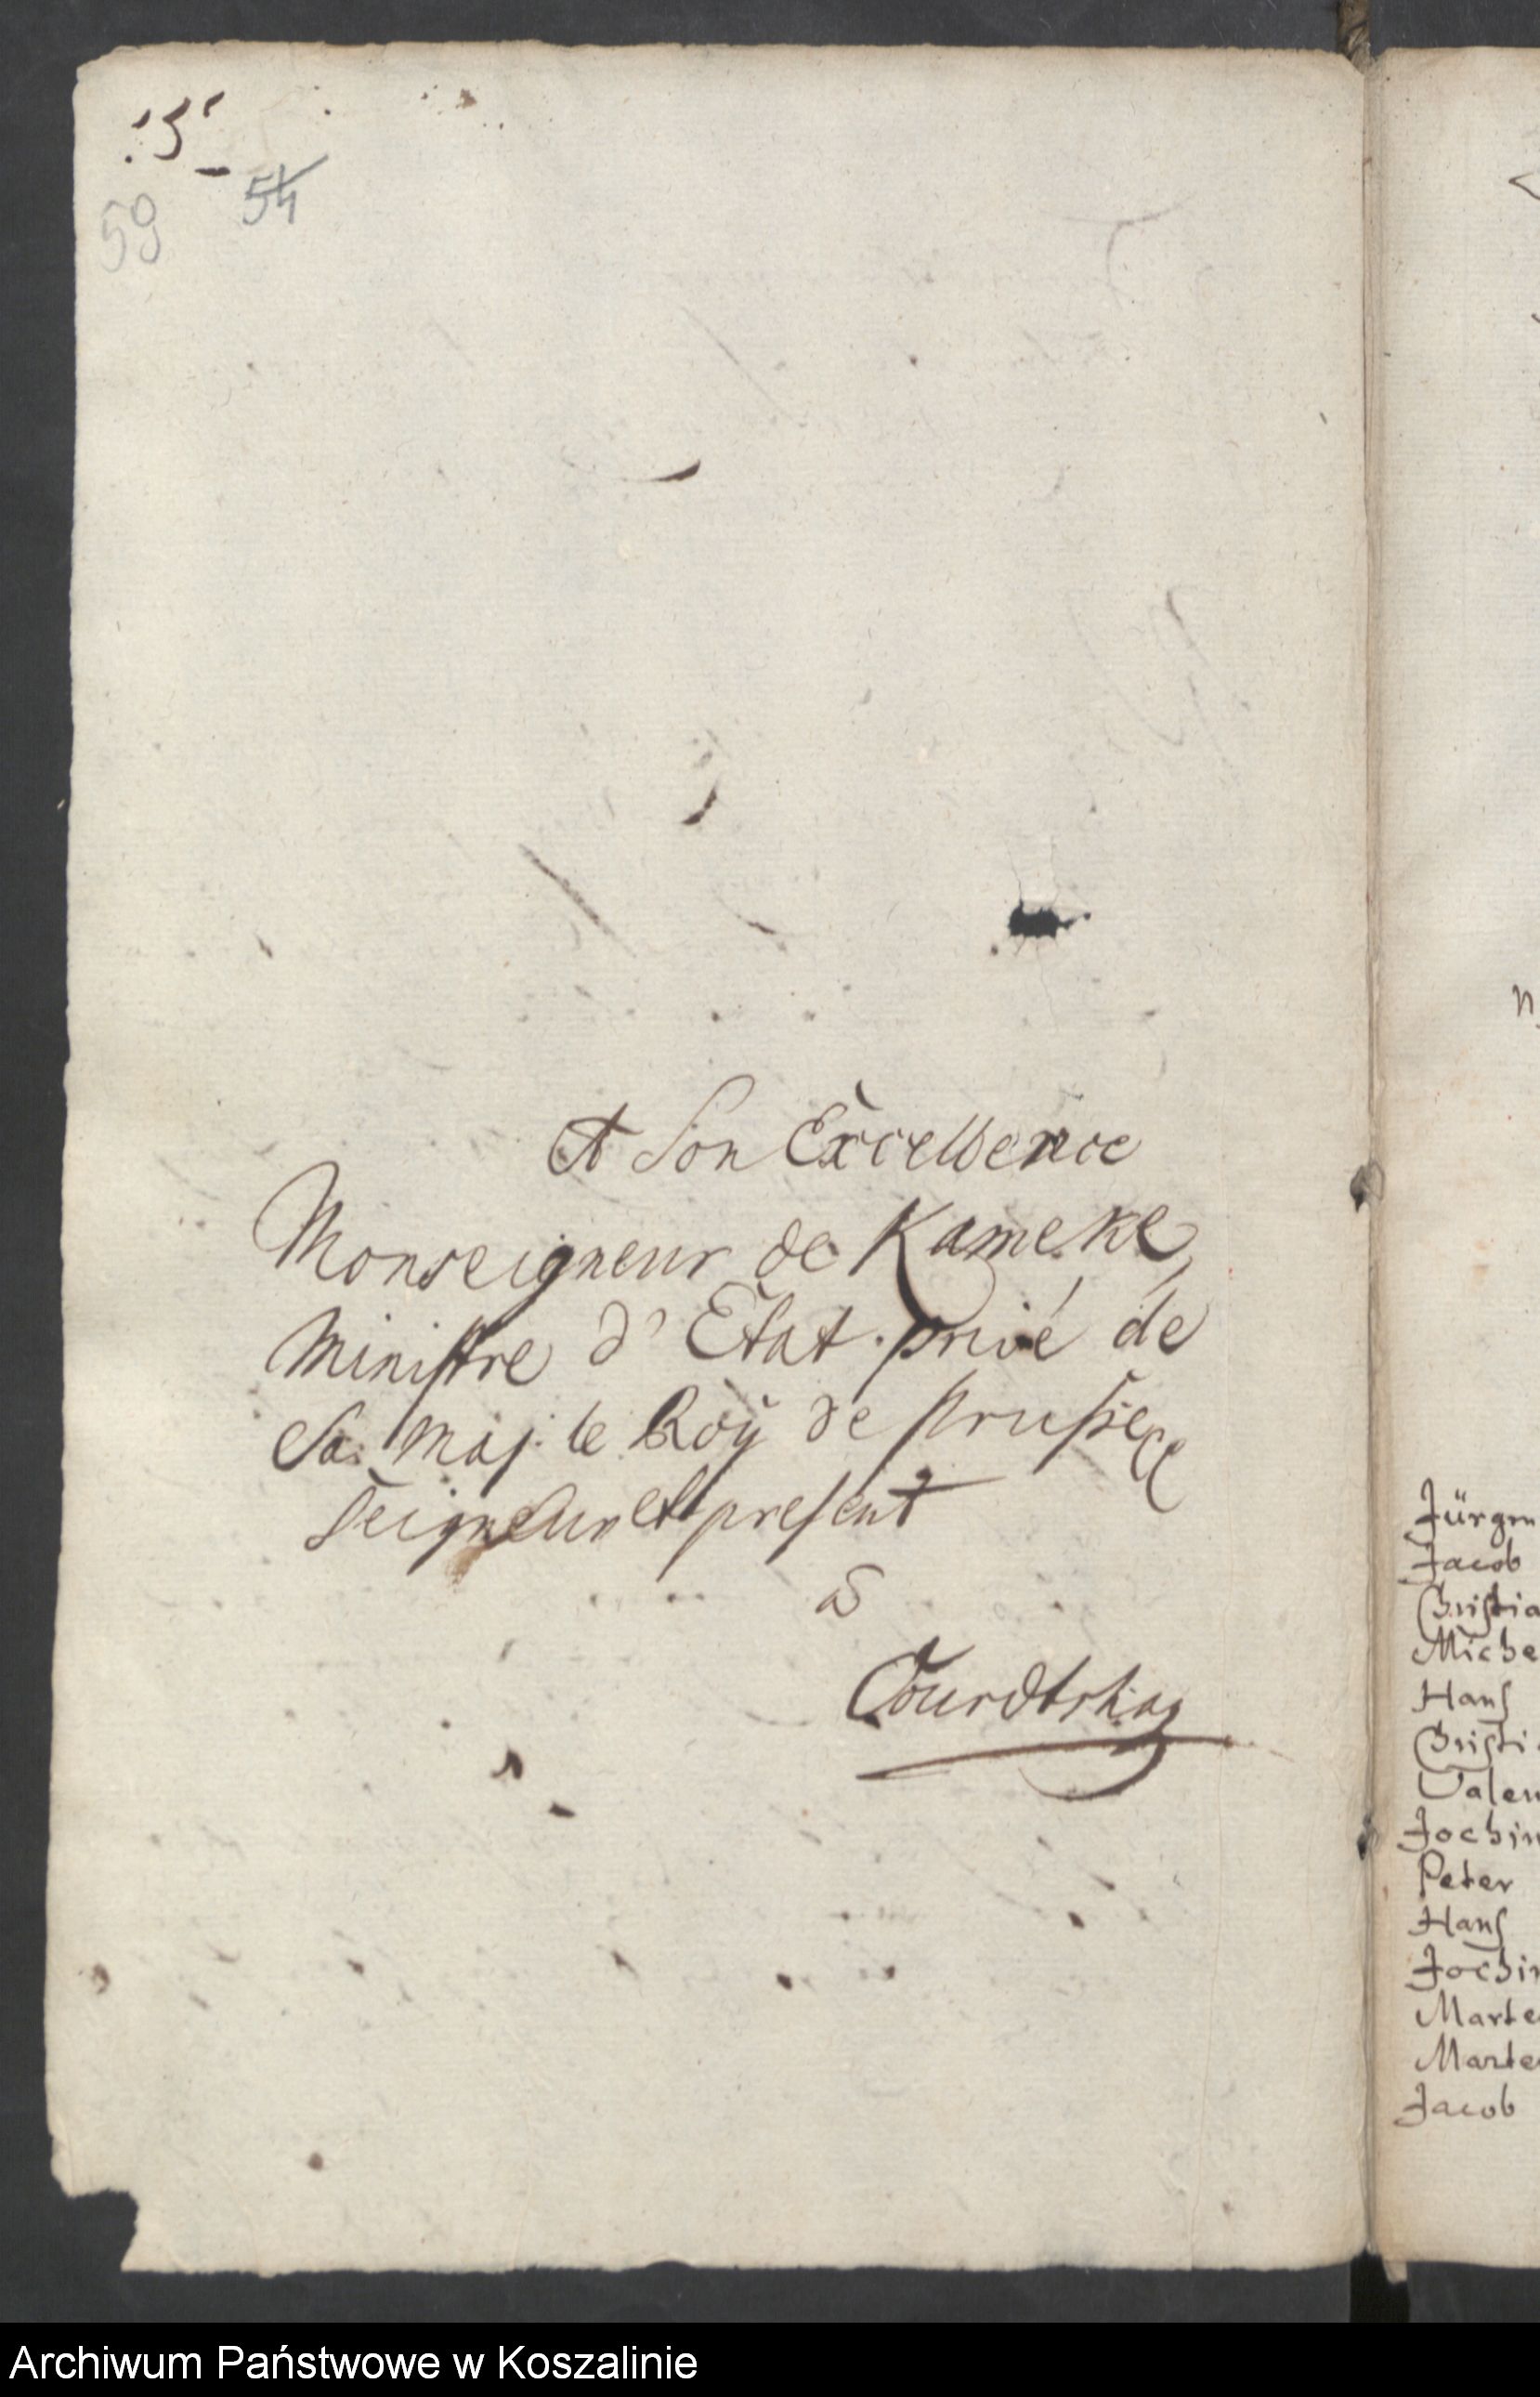 59
54
A Son Excellence
Monseigneur de Kameke
Ministre d'Etat privé de
Sa. Maj. le Roÿ de Prusse
Seigneur et present
à
Jürgen
Jacob
Christia
Miche
Hans
Christi
Valen
Jochim
Peter
Hans
Jochim
Marte
Marte
Jacob
Archiwum Państwowe w Koszalinie